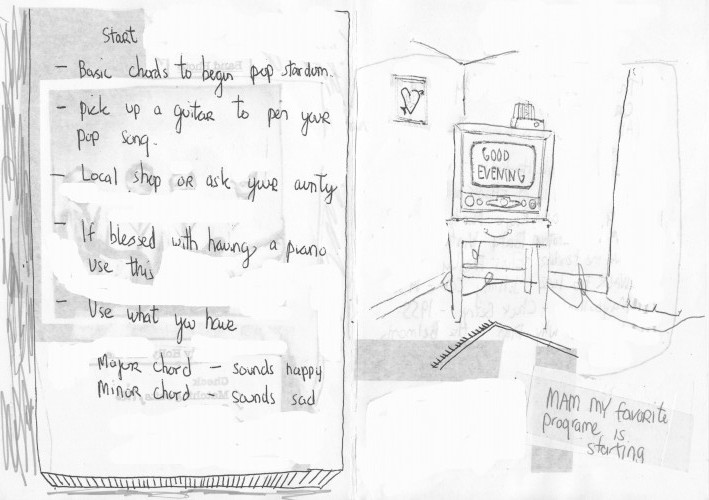 Start
- Basic chords to begin pop stardom.
- pick up a guitar to pen your
pop song.
- Local shop or ask your aunty
- If blessed with having a piano
use this
- Use what you have
Major chord - sounds happy
Minor chord - sounds sad
GOOD
EVENING
MAM MY favorite
programe is
starting